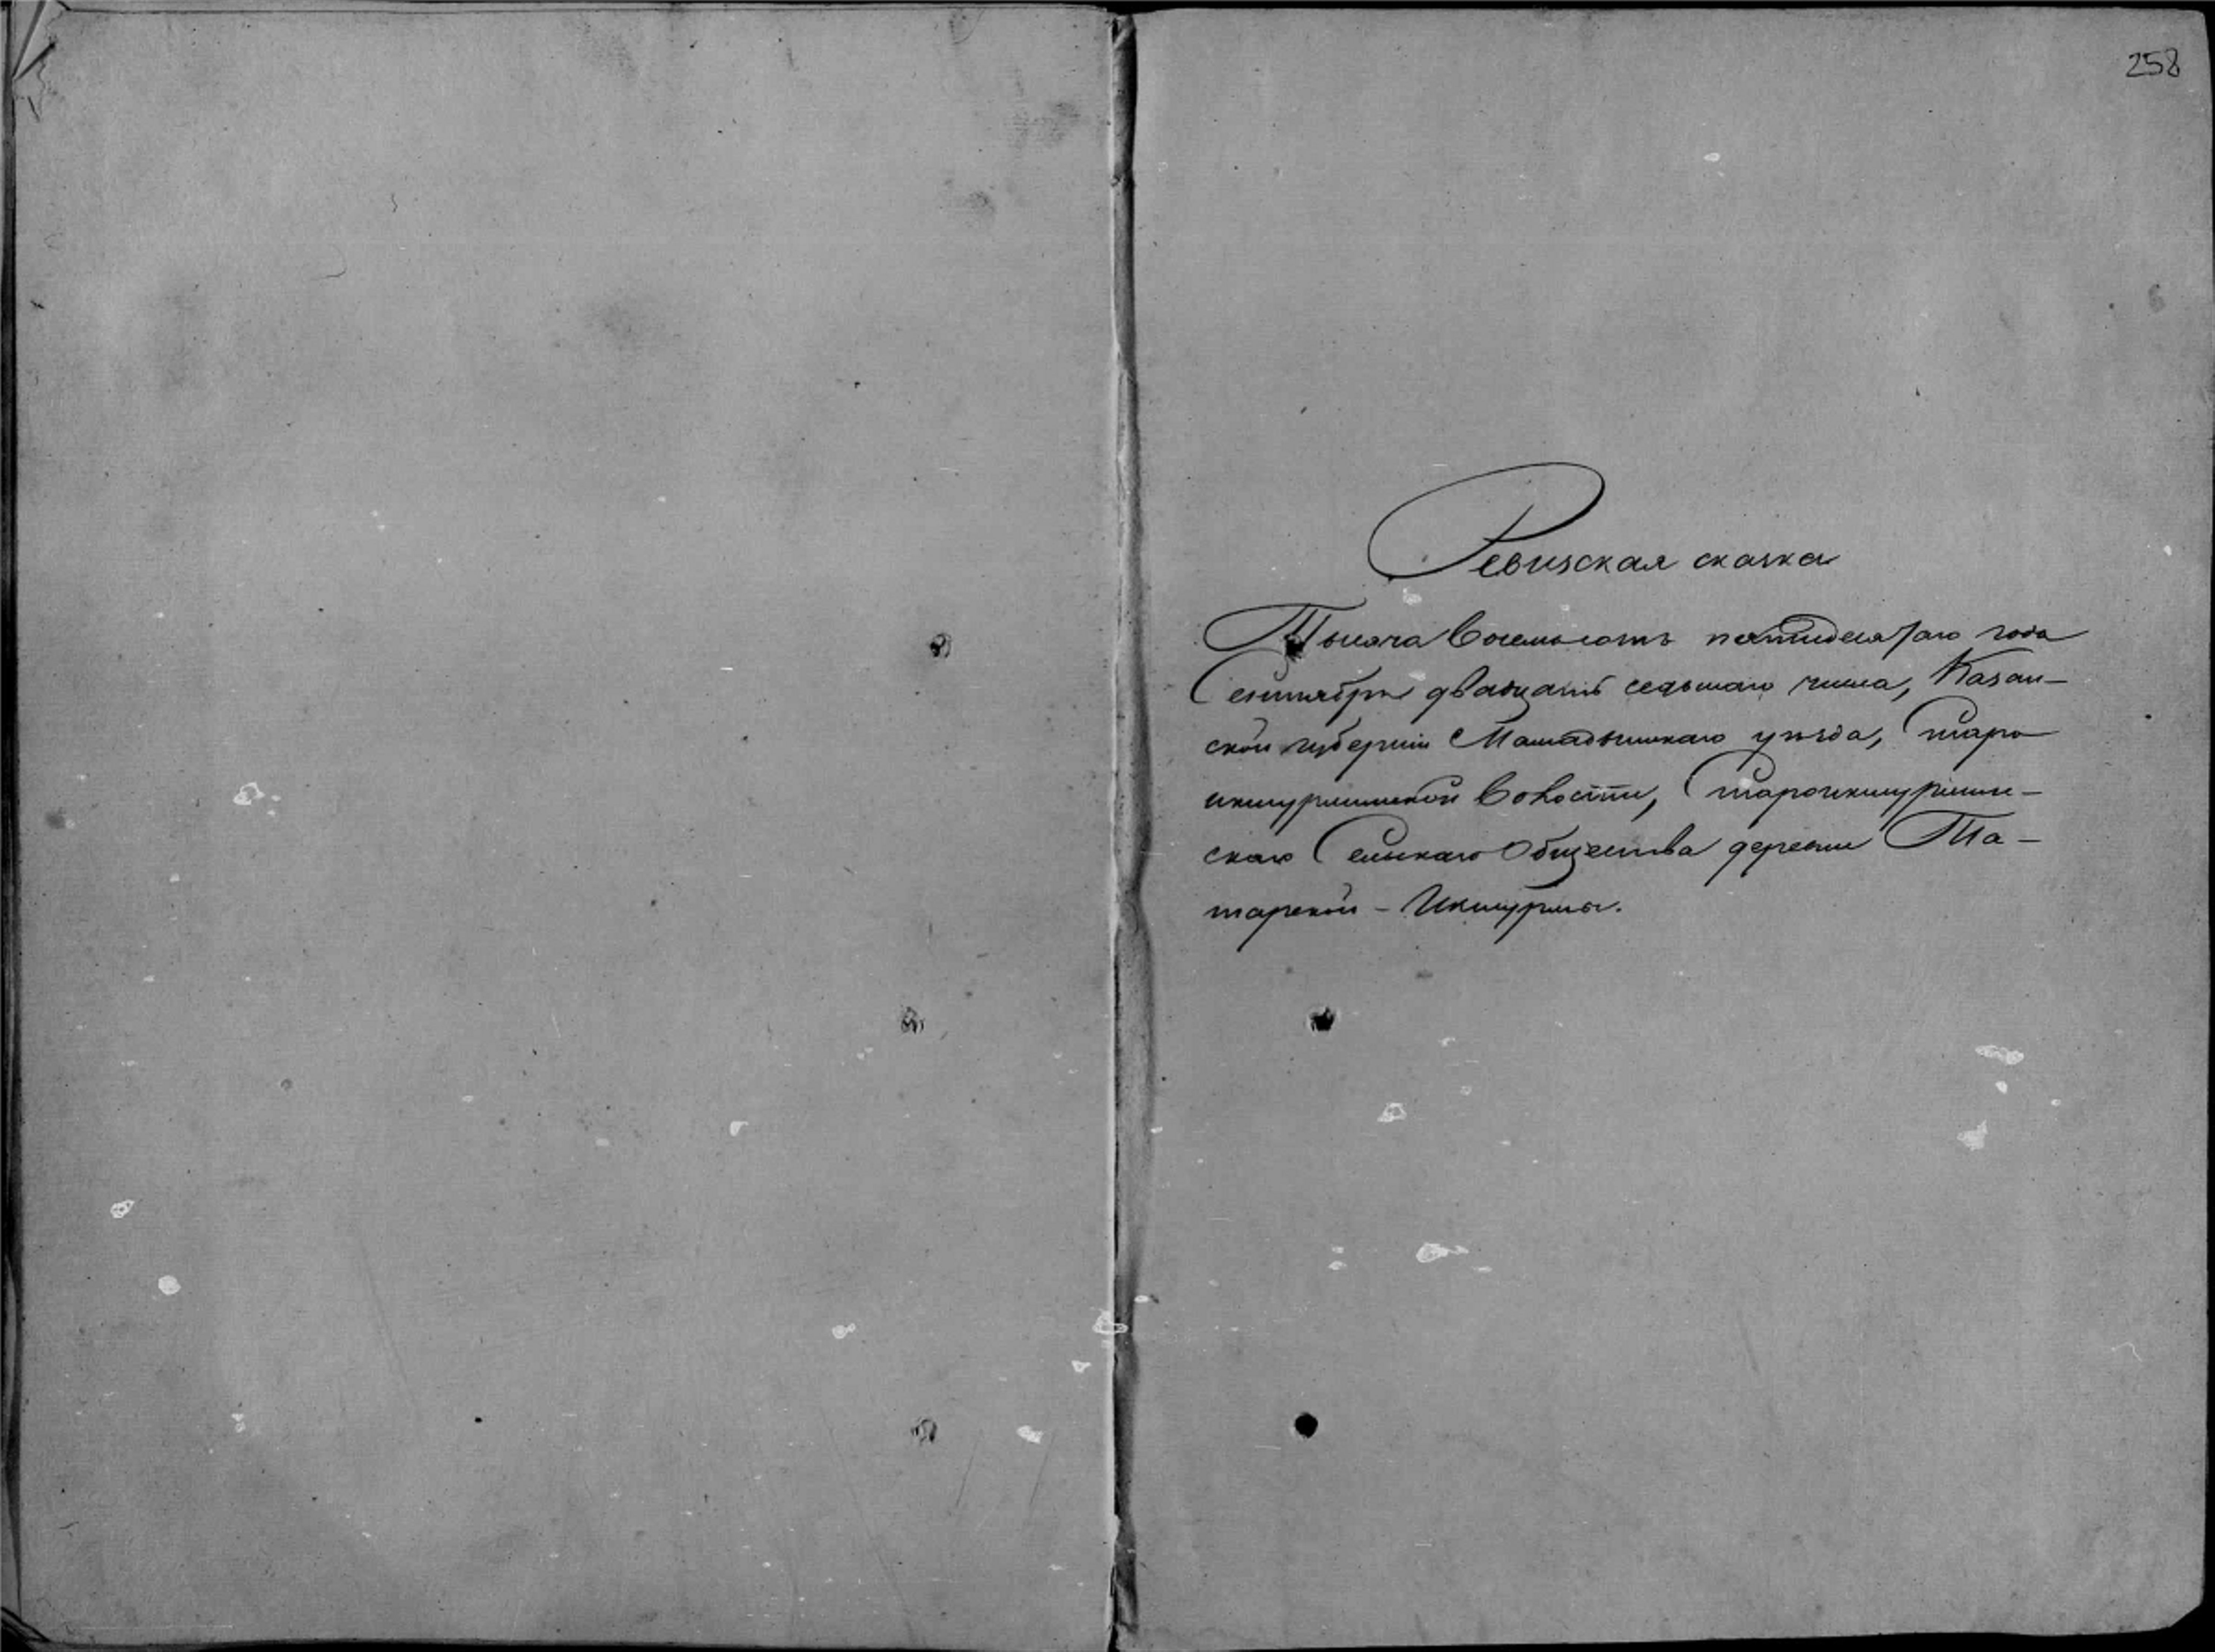 258
Ревизская сказка
Тысяча восемьсотъ пятидесятаго года
Сентября двадцать седьмаго числа, Казан-
ской губернiи Мамадышскаго уѣзда, Старо
икшурминской волости, Староикшурмин-
скаго Сельскаго Общества деревни Та-
тарской - Икшурмы.